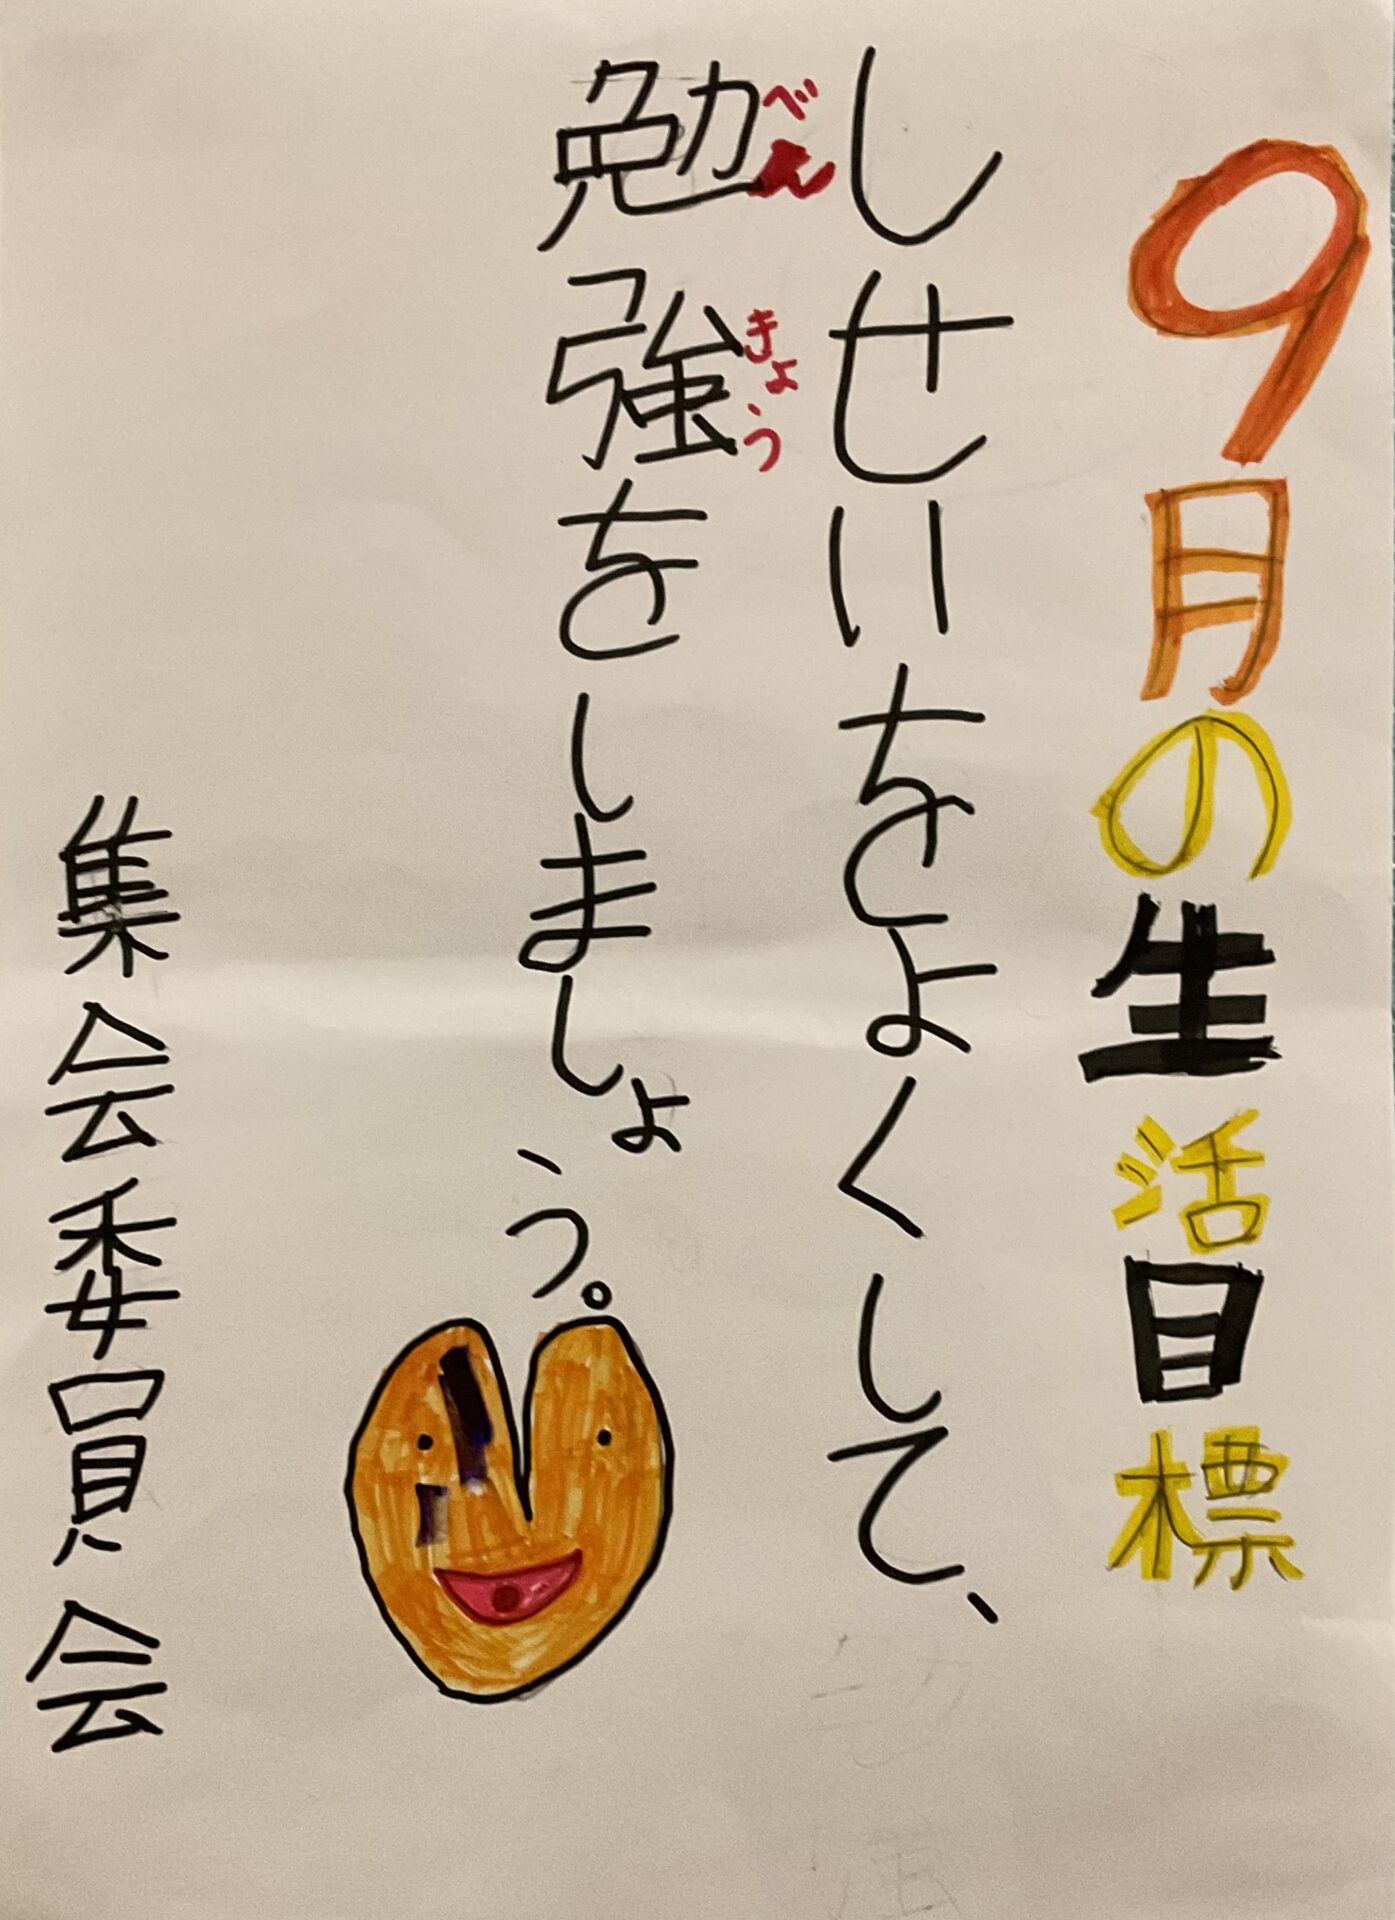 9月の生活目標
しせいをよくして、
勉強をしましょう。
べんきょう
集会委員会